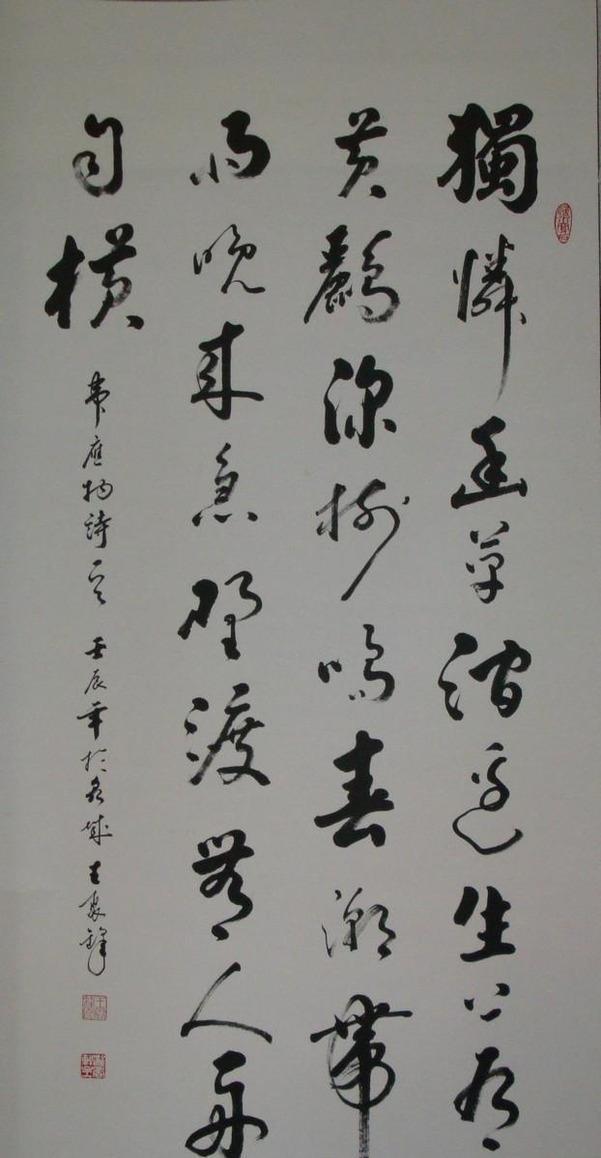 獨憐幽草澗邊生上有
黃鸝深樹鳴春潮帶
雨晚來急野渡無人舟
自橫
韋應物詩一首 壬辰年於 城 王 鋒